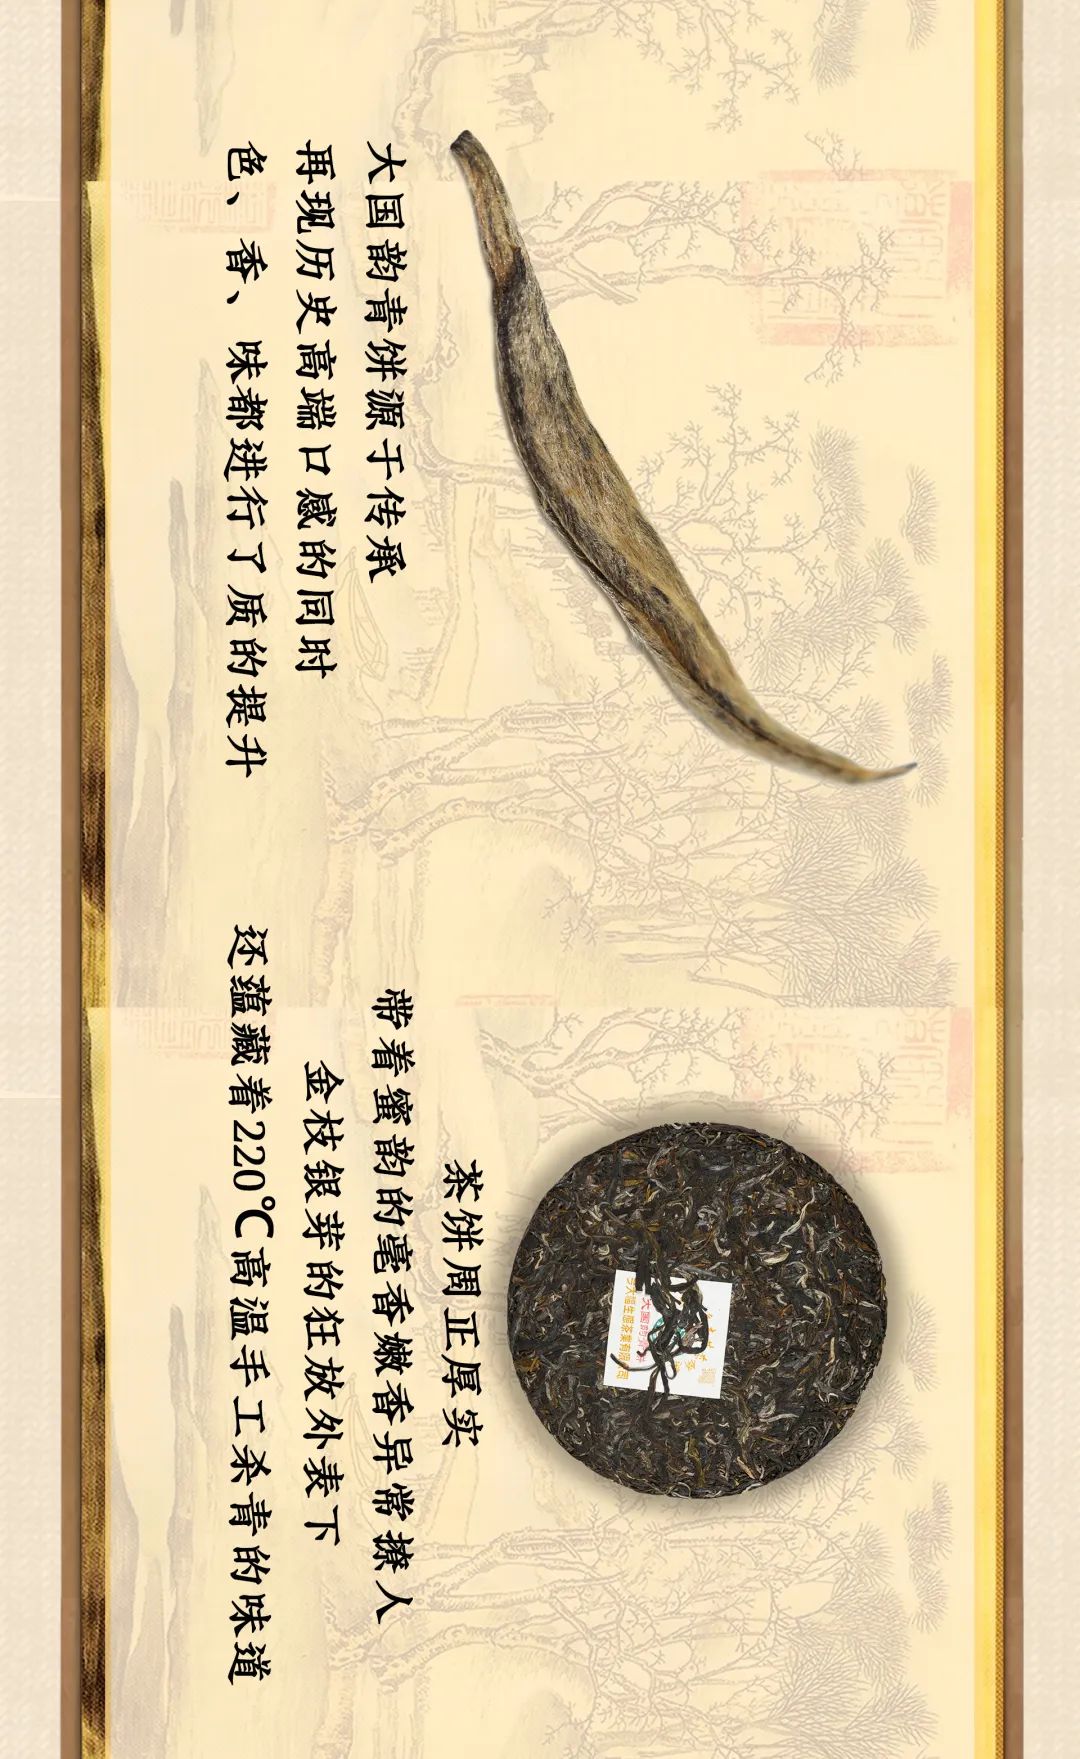 大国韵青饼源于传承
再现历史高端口感的同时
色、香、味都进行了质的提升
茶饼周正厚实
带着蜜韵的毫香嫩香异常撩人
金枝银芽的狂放外表下
还蕴藏着220℃高温手工杀青的味道